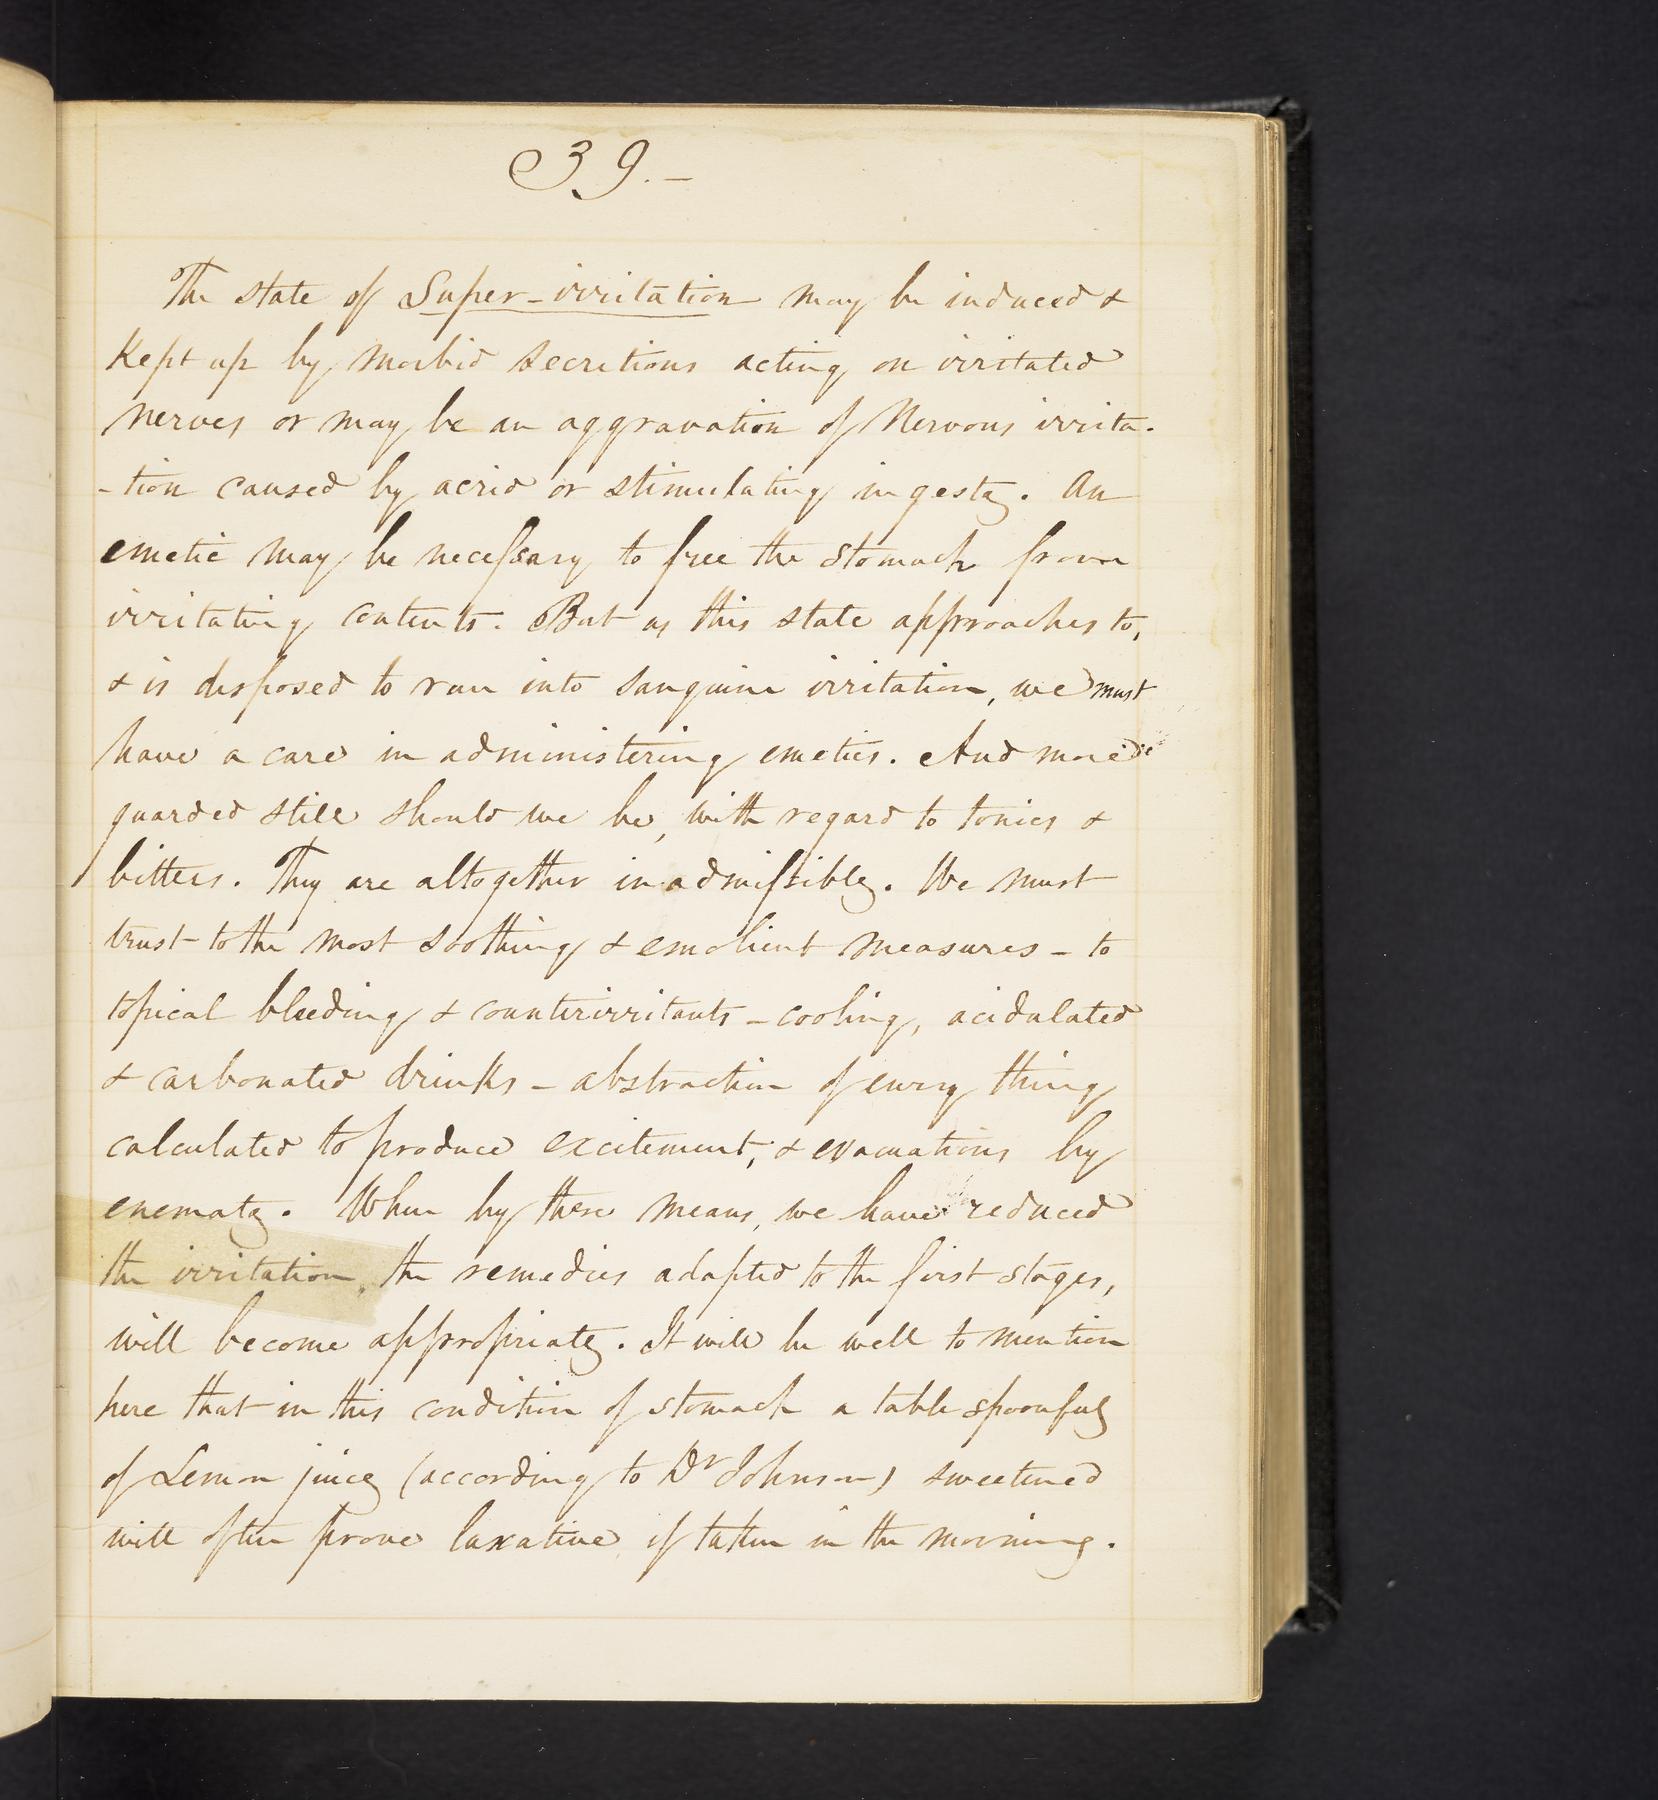 39.-
The state of Super-irritation may be induced &
Kept up by morbid secretions acting on irritated
nerves or may be an aggravation of Nervous irrita-
-tion caused by acrid or stimulating ingesta. An
emetic may be necessary to free the stomach from
irritating contents. But as this state approaches to,
& is disposed to run into sanguine irritation, we must
have a care in administering emetics. And more
guarded still should we be, with regard to tonics &
bitters. They are altogether inadmissible. We must
trust to the most soothing & emolient measures - to
topical bleeding & counterirritants - cooling, acidulated
& carbonated drinks - abstraction of every thing
calculated to produce excitement, & evacuations by
enemata. When by these means, we have reduced
the irritation, the remedies adapted to the first stages,
will become appropriate. It will be well to mention
here that in this condition of stomach a table spoonful
of Lemon juice (according to Dr Johnson) sweetened
will often prove laxative if taken in the morning.